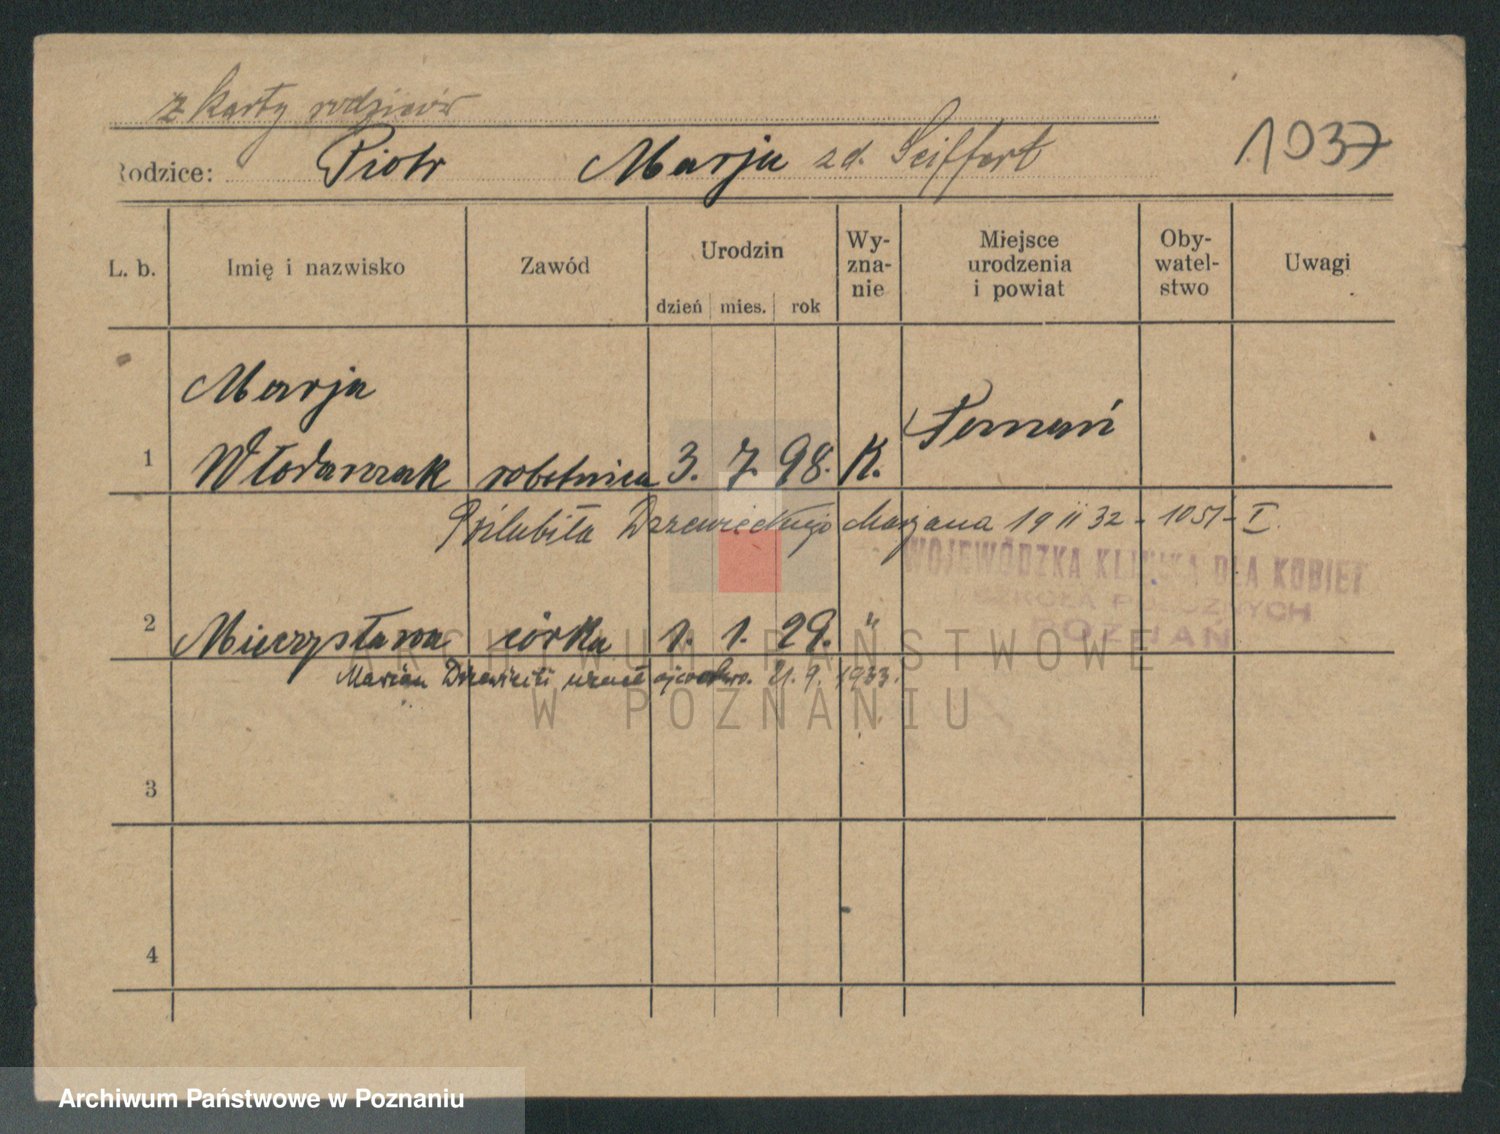 z karty rodziców
Rodzice: Piotr Marja zd. Seiffert
1937
L. b. Imię i nazwisko Zawód Urodzin dzień mies. rok Wy-zna-nie Miejsce urodzenia i powiat Oby-watel-stwo Uwagi
Marja
1 Włodarczak robotnica 3. 7. 98. K. Poznań
Poślubiła Drzewieckiego Marjana 19 II 32 - 1051 - I.
WOJEWÓDZKA KLINIKA DLA KOBIET
I SZKOŁA POŁOŻNYCH
POZNAŃ
2 Mieczysława córka 1. 1. 29. "
Marian Drzewiecki uznał ojcostwo. 21. 9. 1933.
ARCHIWUM PAŃSTWOWE
W POZNANIU
3
4
Archiwum Państwowe w Poznaniu